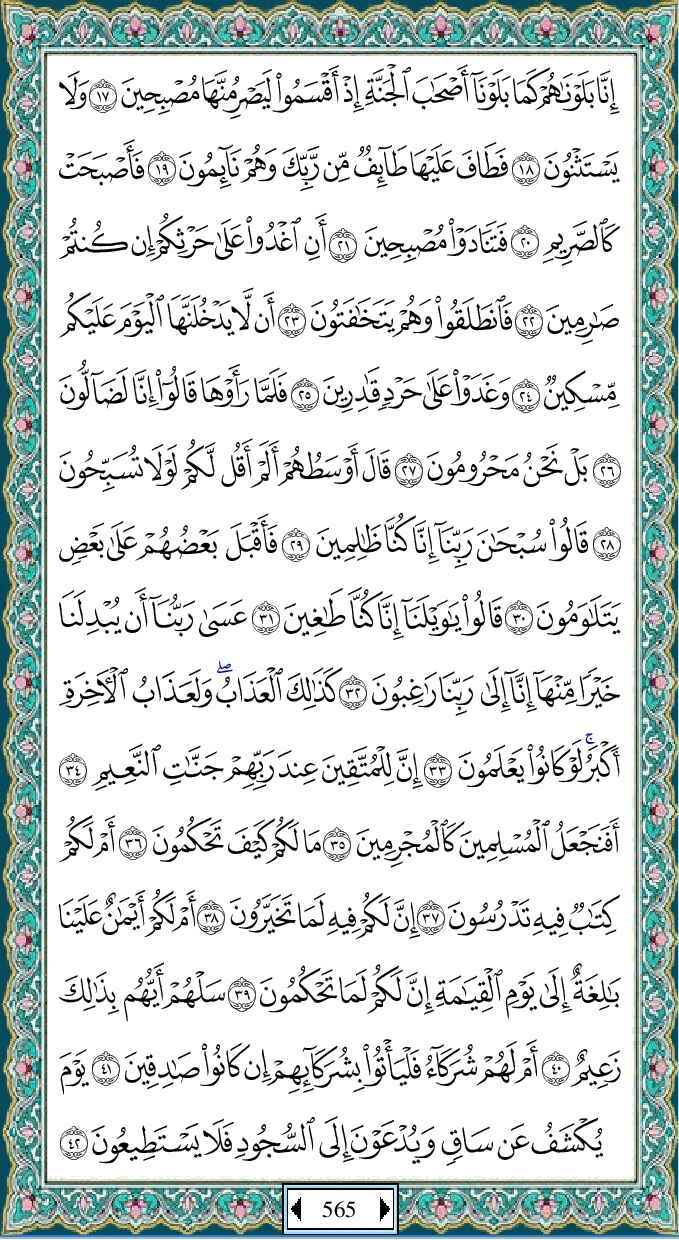 إِنَّا بَلَوْنَٰهُمْ كَمَا بَلَوْنَآ أَصْحَٰبَ ٱلْجَنَّةِ إِذْ أَقْسَمُوا۟ لَيَصْرِمُنَّهَا مُصْبِحِينَ ١٧ وَلَا
يَسْتَثْنُونَ ١٨ فَطَافَ عَلَيْهَا طَآئِفٌ مِّن رَّبِّكَ وَهُمْ نَآئِمُونَ ١٩ فَأَصْبَحَتْ
كَٱلصَّرِيمِ ٢٠ فَتَنَادَوْا۟ مُصْبِحِينَ ٢١ أَنِ ٱغْدُوا۟ عَلَىٰ حَرْثِكُمْ إِن كُنتُمْ
صَٰرِمِينَ ٢٢ فَٱنطَلَقُوا۟ وَهُمْ يَتَخَٰفَتُونَ ٢٣ أَن لَّا يَدْخُلَنَّهَا ٱلْيَوْمَ عَلَيْكُم
مِّسْكِينٌ ٢٤ وَغَدَوْا۟ عَلَىٰ حَرْدٍ قَٰدِرِينَ ٢٥ فَلَمَّا رَأَوْهَا قَالُوٓا۟ إِنَّا لَضَآلُّونَ
٢٦ بَلْ نَحْنُ مَحْرُومُونَ ٢٧ قَالَ أَوْسَطُهُمْ أَلَمْ أَقُل لَّكُمْ لَوْلَا تُسَبِّحُونَ
٢٨ قَالُوا۟ سُبْحَٰنَ رَبِّنَآ إِنَّا كُنَّا ظَٰلِمِينَ ٢٩ فَأَقْبَلَ بَعْضُهُمْ عَلَىٰ بَعْضٍ
يَتَلَٰوَمُونَ ٣٠ قَالُوا۟ يَٰوَيْلَنَآ إِنَّا كُنَّا طَٰغِينَ ٣١ عَسَىٰ رَبُّنَآ أَن يُبْدِلَنَا
خَيْرًا مِّنْهَآ إِنَّآ إِلَىٰ رَبِّنَا رَٰغِبُونَ ٣٢ كَذَٰلِكَ ٱلْعَذَابُ ۖ وَلَعَذَابُ ٱلْءَاخِرَةِ
أَكْبَرُ ۚ لَوْ كَانُوا۟ يَعْلَمُونَ ٣٣ إِنَّ لِلْمُتَّقِينَ عِندَ رَبِّهِمْ جَنَّٰتِ ٱلنَّعِيمِ ٣٤
أَفَنَجْعَلُ ٱلْمُسْلِمِينَ كَٱلْمُجْرِمِينَ ٣٥ مَا لَكُمْ كَيْفَ تَحْكُمُونَ ٣٦ أَمْ لَكُمْ
كِتَٰبٌ فِيهِ تَدْرُسُونَ ٣٧ إِنَّ لَكُمْ فِيهِ لَمَا تَخَيَّرُونَ ٣٨ أَمْ لَكُمْ أَيْمَٰنٌ عَلَيْنَا
بَٰلِغَةٌ إِلَىٰ يَوْمِ ٱلْقِيَٰمَةِ إِنَّ لَكُمْ لَمَا تَحْكُمُونَ ٣٩ سَلْهُمْ أَيُّهُم بِذَٰلِكَ
زَعِيمٌ ٤٠ أَمْ لَهُمْ شُرَكَآءُ فَلْيَأْتُوا۟ بِشُرَكَآئِهِمْ إِن كَانُوا۟ صَٰدِقِينَ ٤١ يَوْمَ
يُكْشَفُ عَن سَاقٍ وَيُدْعَوْنَ إِلَى ٱلسُّجُودِ فَلَا يَسْتَطِيعُونَ ٤٢
565